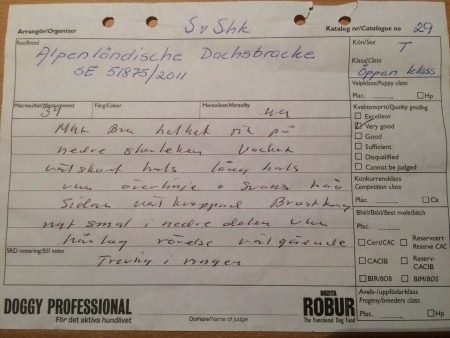 Arrangör/Organizer Sv Shk Katalog nr/Catalogue no 29
Ras/Breed Alpenländische Dachsbracke
SE 51875/2011
Kön/Sex T
Klass/Class
Öppen klass
Valpklass/Puppy class
Plac. Hp
Mankresultat/Measurement 34 Färg/Colour Mentalitet/Mentality ua
Kvalitetspris/Quality grading
Excellent
Very good
Good
Sufficient
Disqualified
Cannot be judged
Mkt Bra helhet på
nedre storleken Vacker
hals lång hals
överlinje o Svans
Sidan väl kroppad Bröstkorg
ngt smal i nedre delen
rörelse
Trevlig i ringen
Konkurrensklass
Competition class
Plac. Ck
Bhkl/Btkl/Best male/bitch
Plac.
Cert/CAC Reservcert
Reserve CAC
CACIB Reserv-
CACIB
BIR/BOB BIM/BOS
Avels-/uppfödarklass
Progeny/breeders class
Plac. Hp
SRD notering/BSI notes
DOGGY PROFESSIONAL
För det aktiva hundlivet
Domare/Name of judge
BOZITA
ROBUR
The Functional Dog Food